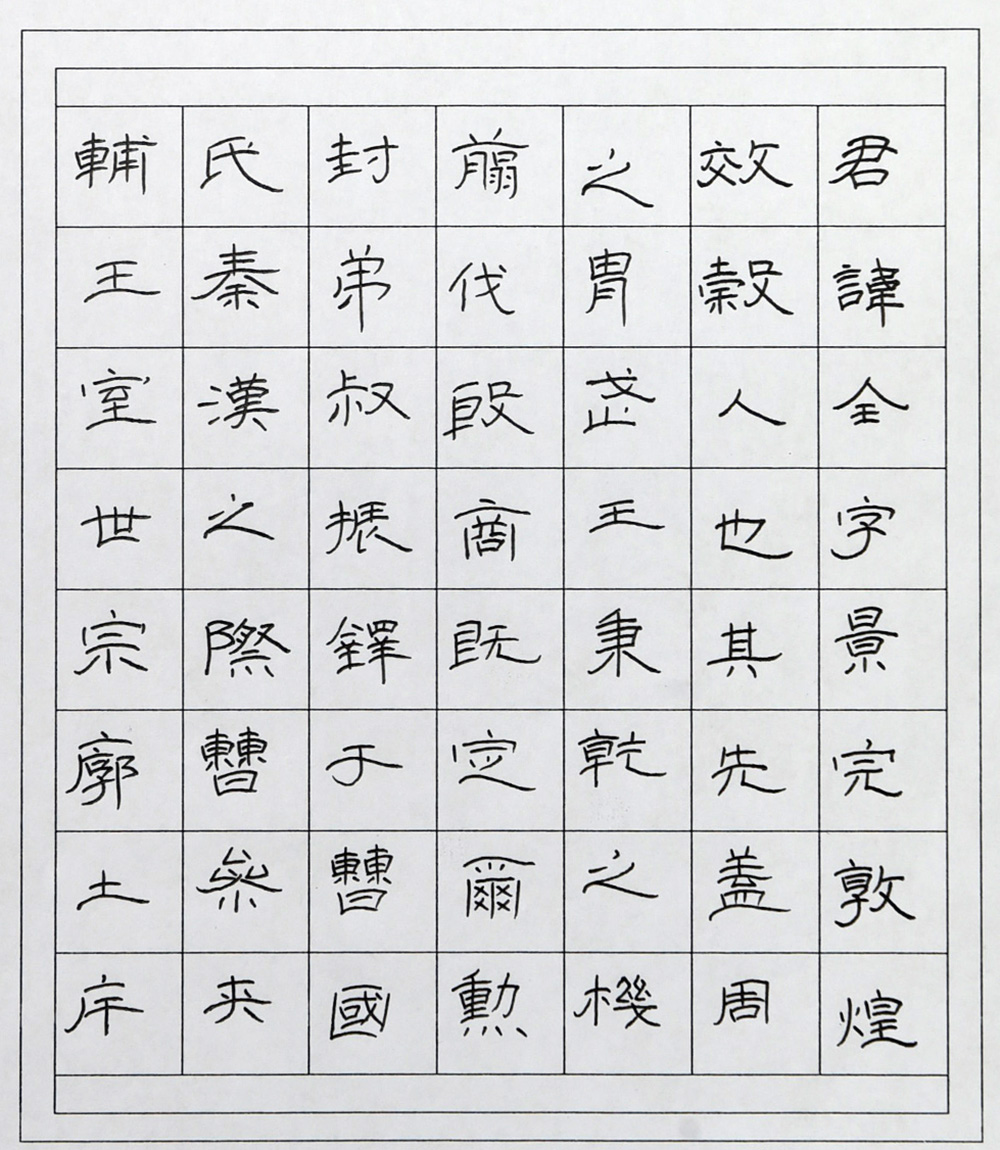 君諱全字景完敦煌
效穀人也其先蓋周
之冑武王秉乾之機
翦伐殷商既定爾勳
封弟叔振鐸于曹國
氏秦漢之際曹參夾
輔王室世宗廓土斥